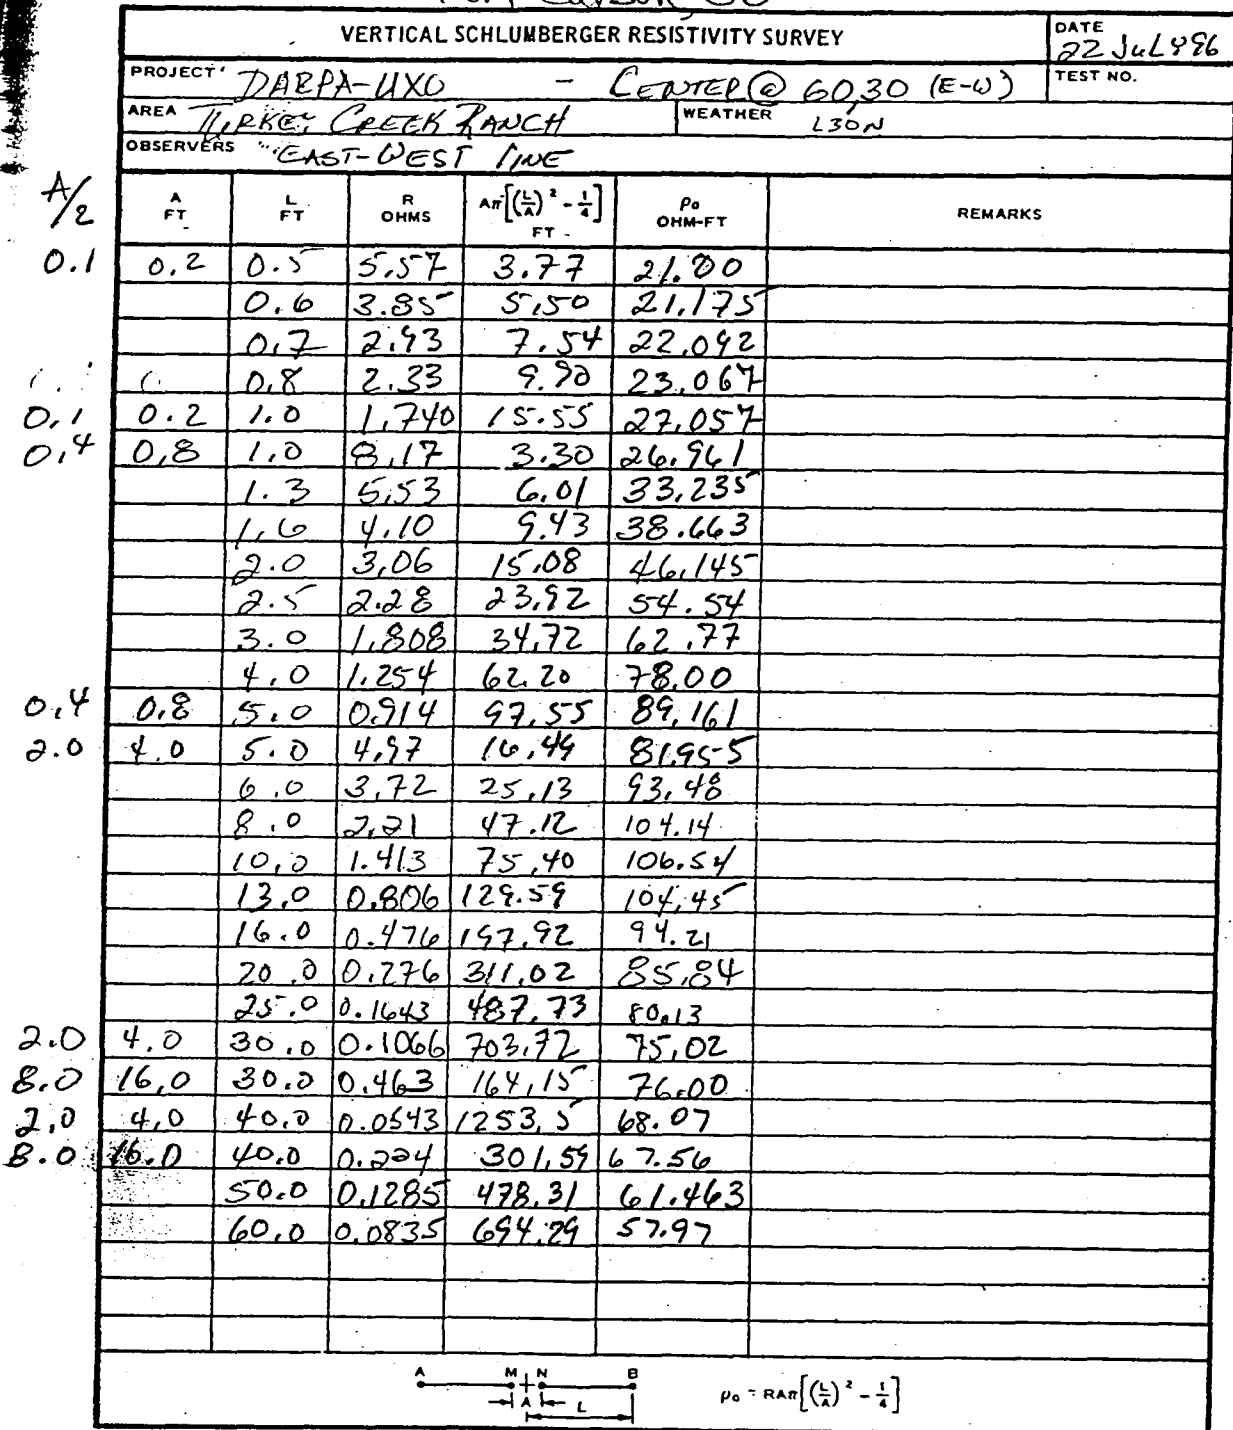 Fort Carson, CO
VERTICAL SCHLUMBERGER RESISTIVITY SURVEY
DATE 22 JuL 96
PROJECT DARPA-UXO - CENTER @ 60,30 (E-W)
TEST NO.
AREA TURKEY CREEK RANCH
WEATHER L30N
OBSERVERS EAST-WEST LINE
A/2 A FT L FT R OHMS Aπ[(L/A)² - 1/4] FT ρa OHM-FT REMARKS
0.1 0.2 0.5 5.57 3.77 21.00
0.6 3.85 5.50 21.175
0.7 2.93 7.54 22.092
0.8 2.33 9.90 23.067
0.1 0.2 1.0 1.740 15.55 27.057
0.4 0.8 1.0 8.17 3.30 26.961
1.3 5.53 6.01 33.235
1.6 4.10 9.43 38.663
2.0 3.06 15.08 46.145
2.5 2.28 23.92 54.54
3.0 1.808 34.72 62.77
4.0 1.254 62.20 78.00
0.4 0.8 5.0 0.914 97.55 89.161
2.0 4.0 5.0 4.97 16.49 81.955
6.0 3.72 25.13 93.48
8.0 2.21 47.12 104.14
10.0 1.413 75.40 106.54
13.0 0.806 129.59 104.45
16.0 0.476 197.92 94.21
20.0 0.276 311.02 85.84
25.0 0.1643 487.73 80.13
2.0 4.0 30.0 0.1066 703.72 75.02
8.0 16.0 30.0 0.463 164.15 76.00
2.0 4.0 40.0 0.0543 1253.5 68.07
8.0 16.0 40.0 0.224 301.59 67.56
50.0 0.1285 478.31 61.463
60.0 0.0835 694.29 57.97
A M N B
A L
ρa = RAπ[(L/A)² - 1/4]